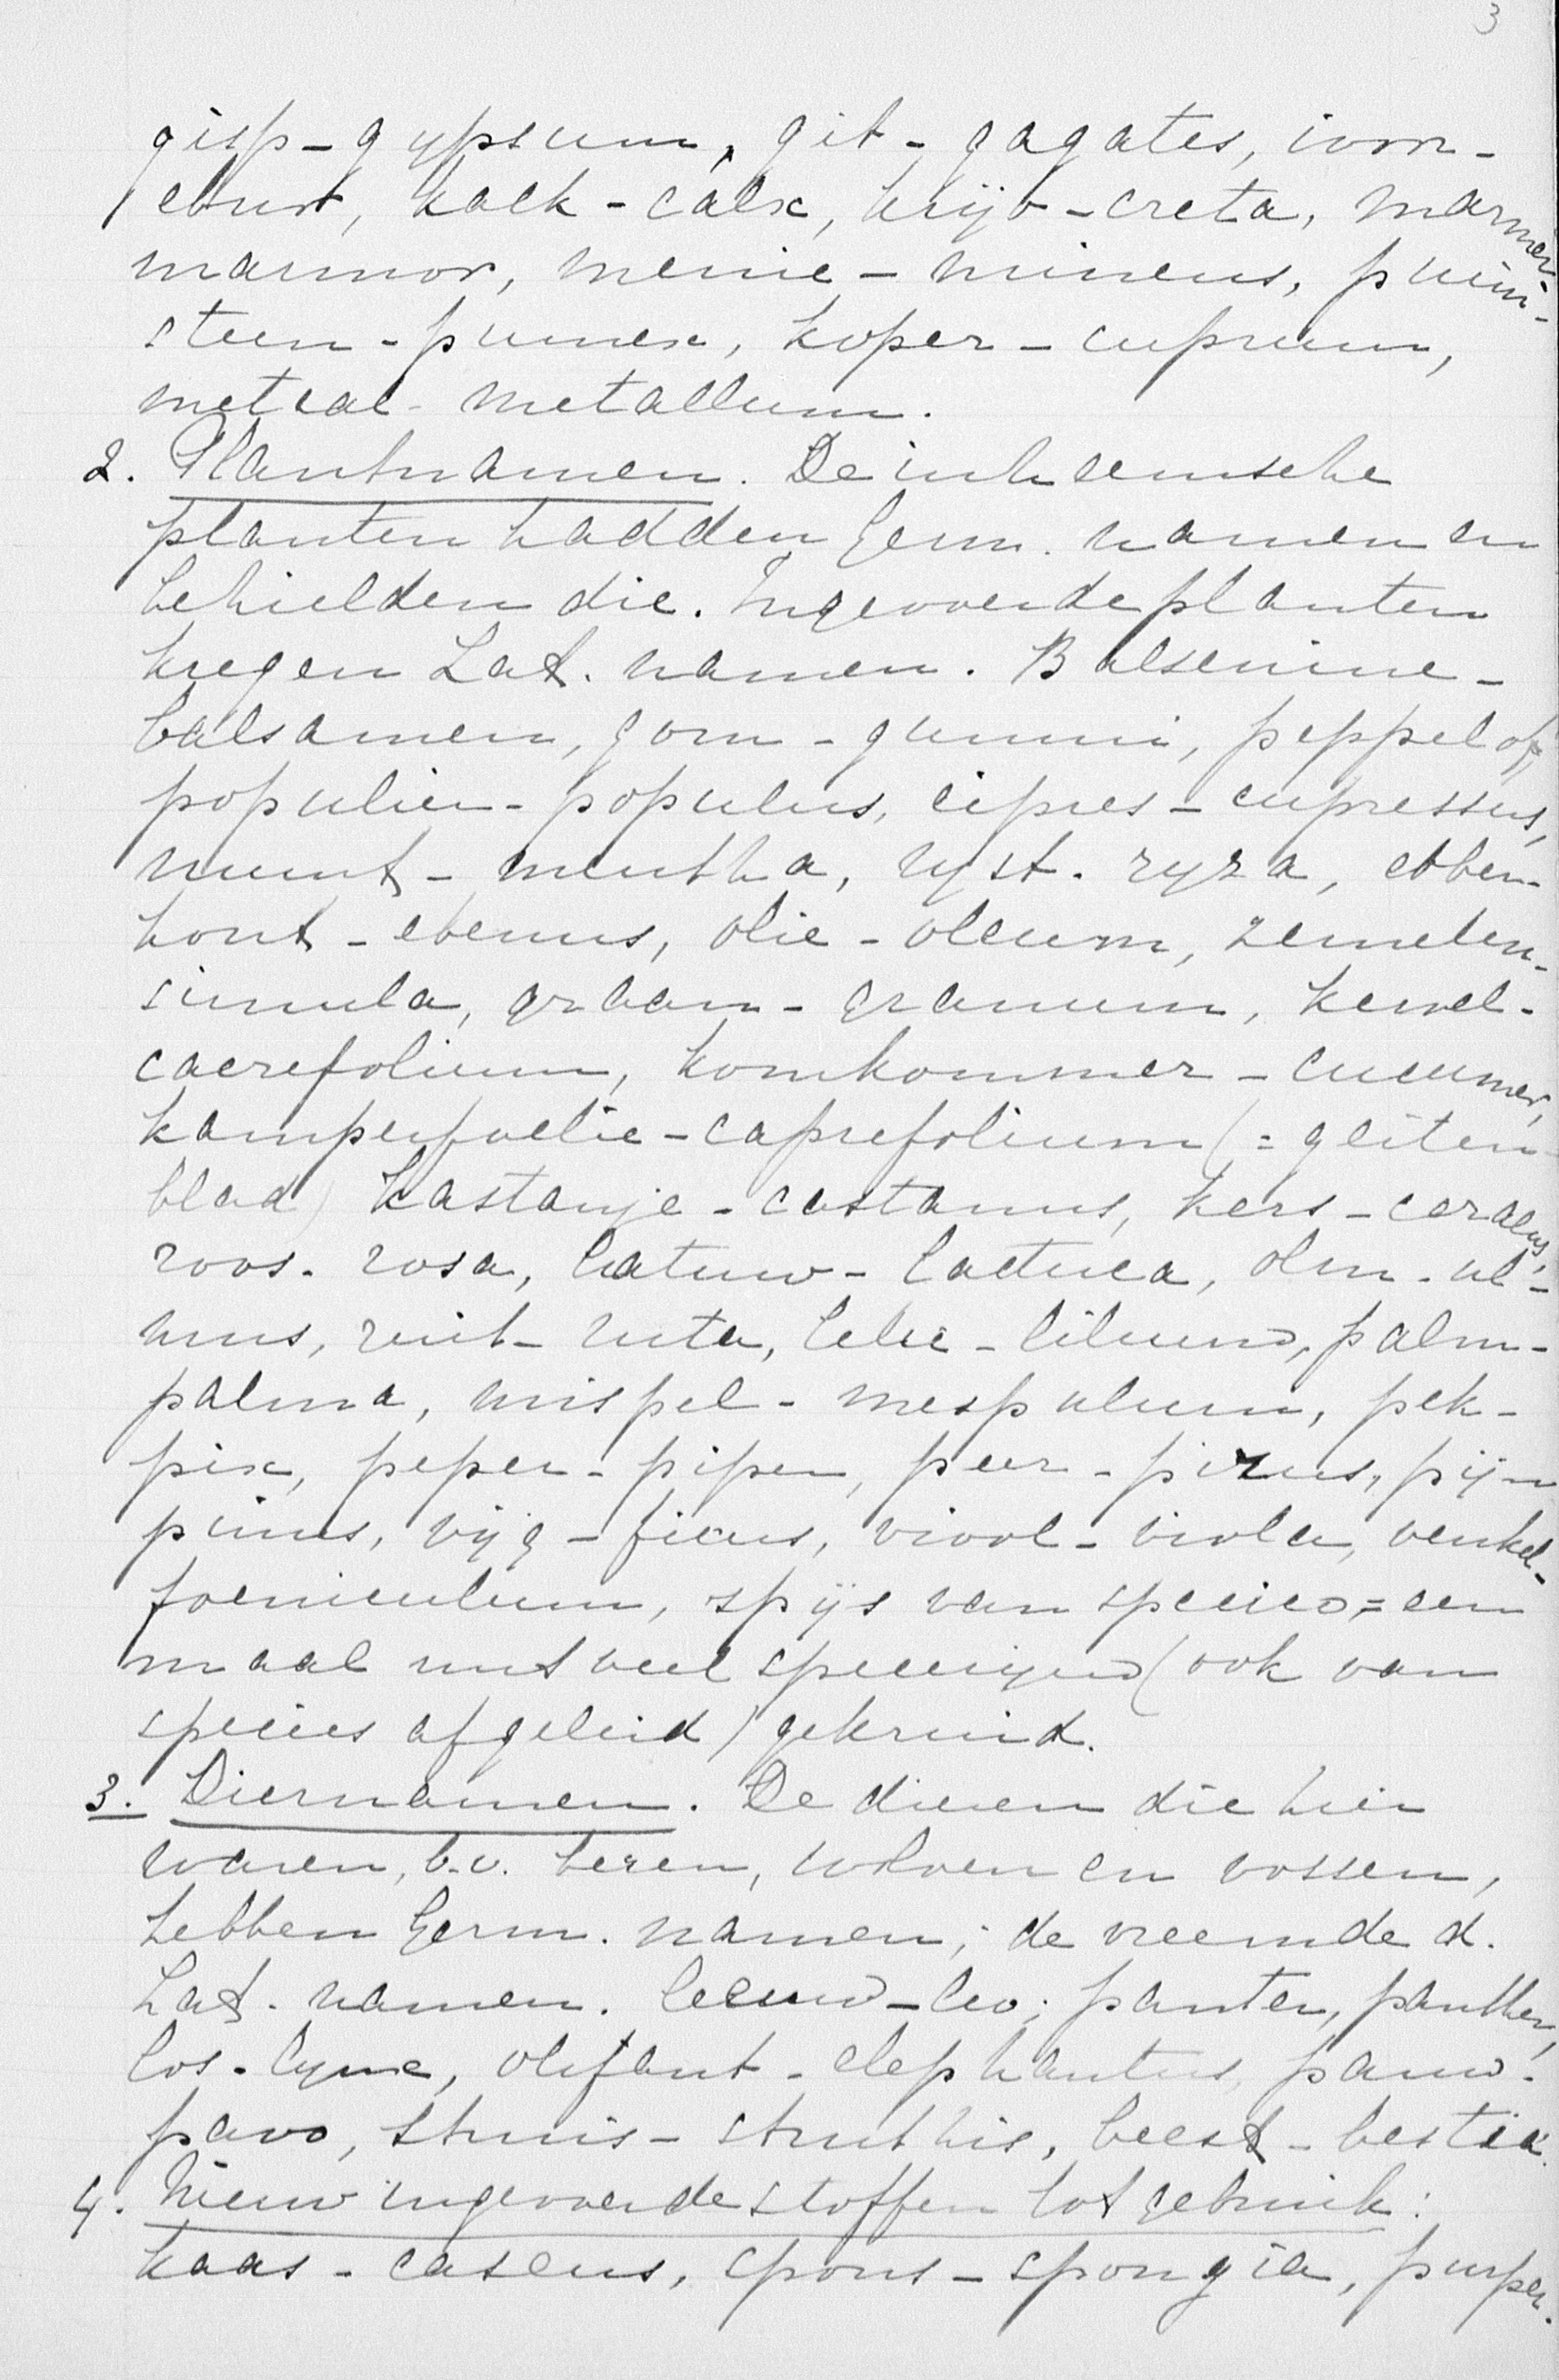 3
gisp - gypsum, git - gagates, ivoor -
ebur, kalk - calx, krijt - creta, marmer
marmor, menie - minens, puim-
steen - pumex, koper - cuprum,
metaal - metallum.
2. Plantnamen. De inheemsche
planten hadden Germ. namen en
behielden die. Ingevoerde planten
kregen Lat. namen. Balsemine -
balsamen, gom - gummi, peppel of
populier - populus, cipres - cupressus,
munt - mentha, ryst - ryza, ebben-
hout - ebenus, olie - oleum, zemelen -
simula, graan - granum, kervel -
caerefolium, komkommer - cucumer,
kamperfoelie - caprefolium (= geiten
blad) kastanje - castanus, kers - cerasus,
roos - rosa, latuw - lactuca, olm - ul-
mus, ruit - ruta, lelie - lilium, palm -
palma, mispel - mespulum, pek -
pix, peper - piper, peer - pirus, pijn
pinus, vijg - ficus, viool - viola, venkel -
foeniculum, spijs van species = een
maal met veel specerijen (ook van
species afgeleid) gekruid.
3. Diernamen. De dieren die hier
waren, b.v. beren, wolven en vossen,
hebben Germ. namen; de vreemde d.
Lat. namen. leeuw - leo; panter, panther,
los - lynx, olifant - elephantus, pauw -
pavo, struis - struthis, beest - bestia.
4. Nieuw ingevoerde stoffen tot gebruik:
kaas - caseus, spons - spongia, purper -